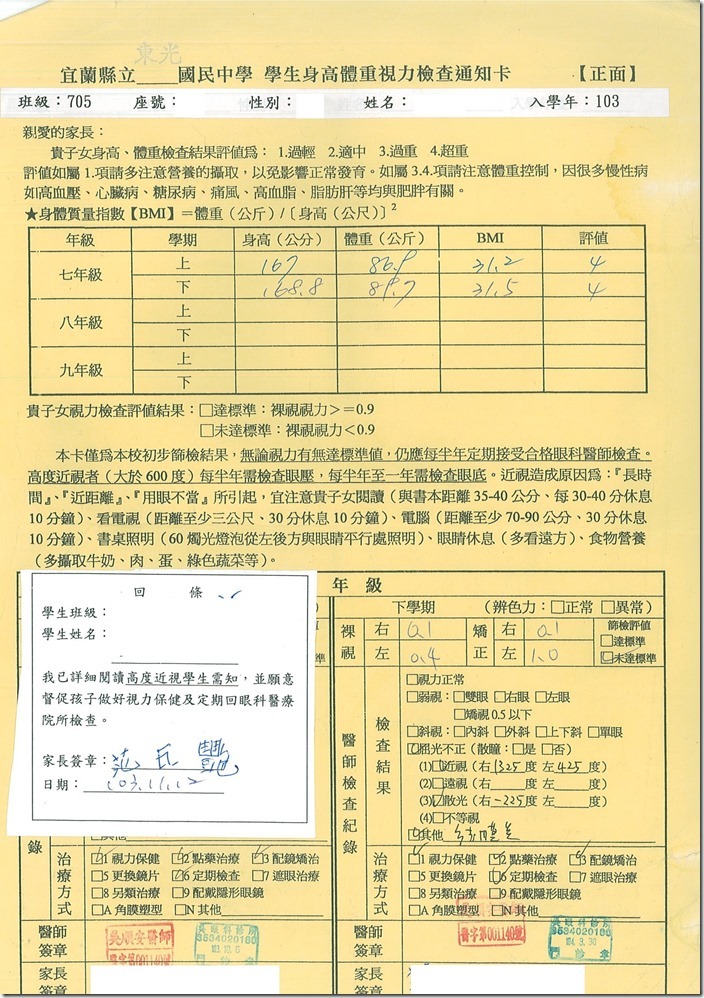 東光
宜蘭縣立____國民中學 學生身高體重視力檢查通知卡 【正面】
班級：705 座號： 性別： 姓名： 入學年：103
親愛的家長：
貴子女身高、體重檢查結果評值為： 1.過輕 2.適中 3.過重 4.超重
評值如屬 1.項請多注意營養的攝取，以免影響正常發育。如屬 3.4.項請注意體重控制，因很多慢性病
如高血壓、心臟病、糖尿病、痛風、高血脂、脂肪肝等均與肥胖有關。
★身體質量指數【BMI】＝體重（公斤）/〔身高（公尺）〕2
年級 學期 身高（公分） 體重（公斤） BMI 評值
七年級 上 167 86.9 31.2 4
下 168.8 89.7 31.5 4
八年級 上
下
九年級 上
下
貴子女視力檢查評值結果：□達標準：裸視視力＞＝0.9
□未達標準：裸視視力＜0.9
本卡僅為本校初步篩檢結果，無論視力有無達標準值，仍應每半年定期接受合格眼科醫師檢查。
高度近視者（大於 600 度）每半年需檢查眼壓，每半年至一年需檢查眼底。近視造成原因為：『長時
間』、『近距離』、『用眼不當』所引起，宜注意貴子女閱讀（與書本距離 35-40 公分、每 30-40 分休息
10 分鐘）、看電視（距離至少三公尺、30 分休息 10 分鐘）、電腦（距離至少 70-90 公分、30 分休息
10 分鐘）、書桌照明（60 燭光燈泡從左後方與眼睛平行處照明）、眼睛休息（多看遠方）、食物營養
（多攝取牛奶、肉、蛋、綠色蔬菜等）。
年 級
回 條
學生班級：
學生姓名：
我已詳細閱讀高度近視學生需知，並願意
督促孩子做好視力保健及定期回眼科醫療
院所檢查。
家長簽章：
日期：103.11.12
下學期 （辨色力：□正常 □異常）
裸視 右 0.1 矯正 右 0.1 篩檢評值
□達標準
左 0.4 左 1.0 ☑未達標準
醫師檢查紀錄 檢查結果
□視力正常
□弱視：□雙眼 □右眼 □左眼
□矯視 0.5 以下
□斜視：□內斜 □外斜 □上下斜 □單眼
☑屈光不正（散瞳：□是 □否）
(1)☑近視（右1325度 左425度）
(2)□遠視（右____度 左____度）
(3)☑散光（右-225度 左____度）
(4)□不等視
☑其他
□其他
錄
治療方式
☑1 視力保健 ☑2 點藥治療 ☑3 配鏡矯治
□5 更換鏡片 ☑6 定期檢查 □7 遮眼治療
□8 另類治療 □9 配戴隱形眼鏡
□A 角膜塑型 □N 其他
治療方式
☑1 視力保健 ☑2 點藥治療 ☑3 配鏡矯治
□5 更換鏡片 ☑6 定期檢查 □7 遮眼治療
□8 另類治療 □9 配戴隱形眼鏡
□A 角膜塑型 □N 其他
醫師簽章 吳順安醫師 醫字第001140號 吳眼科診所 3534020180
醫師簽章 醫字第001140號 吳眼科診所 3534020180 104.3.30 門診章
家長
家長